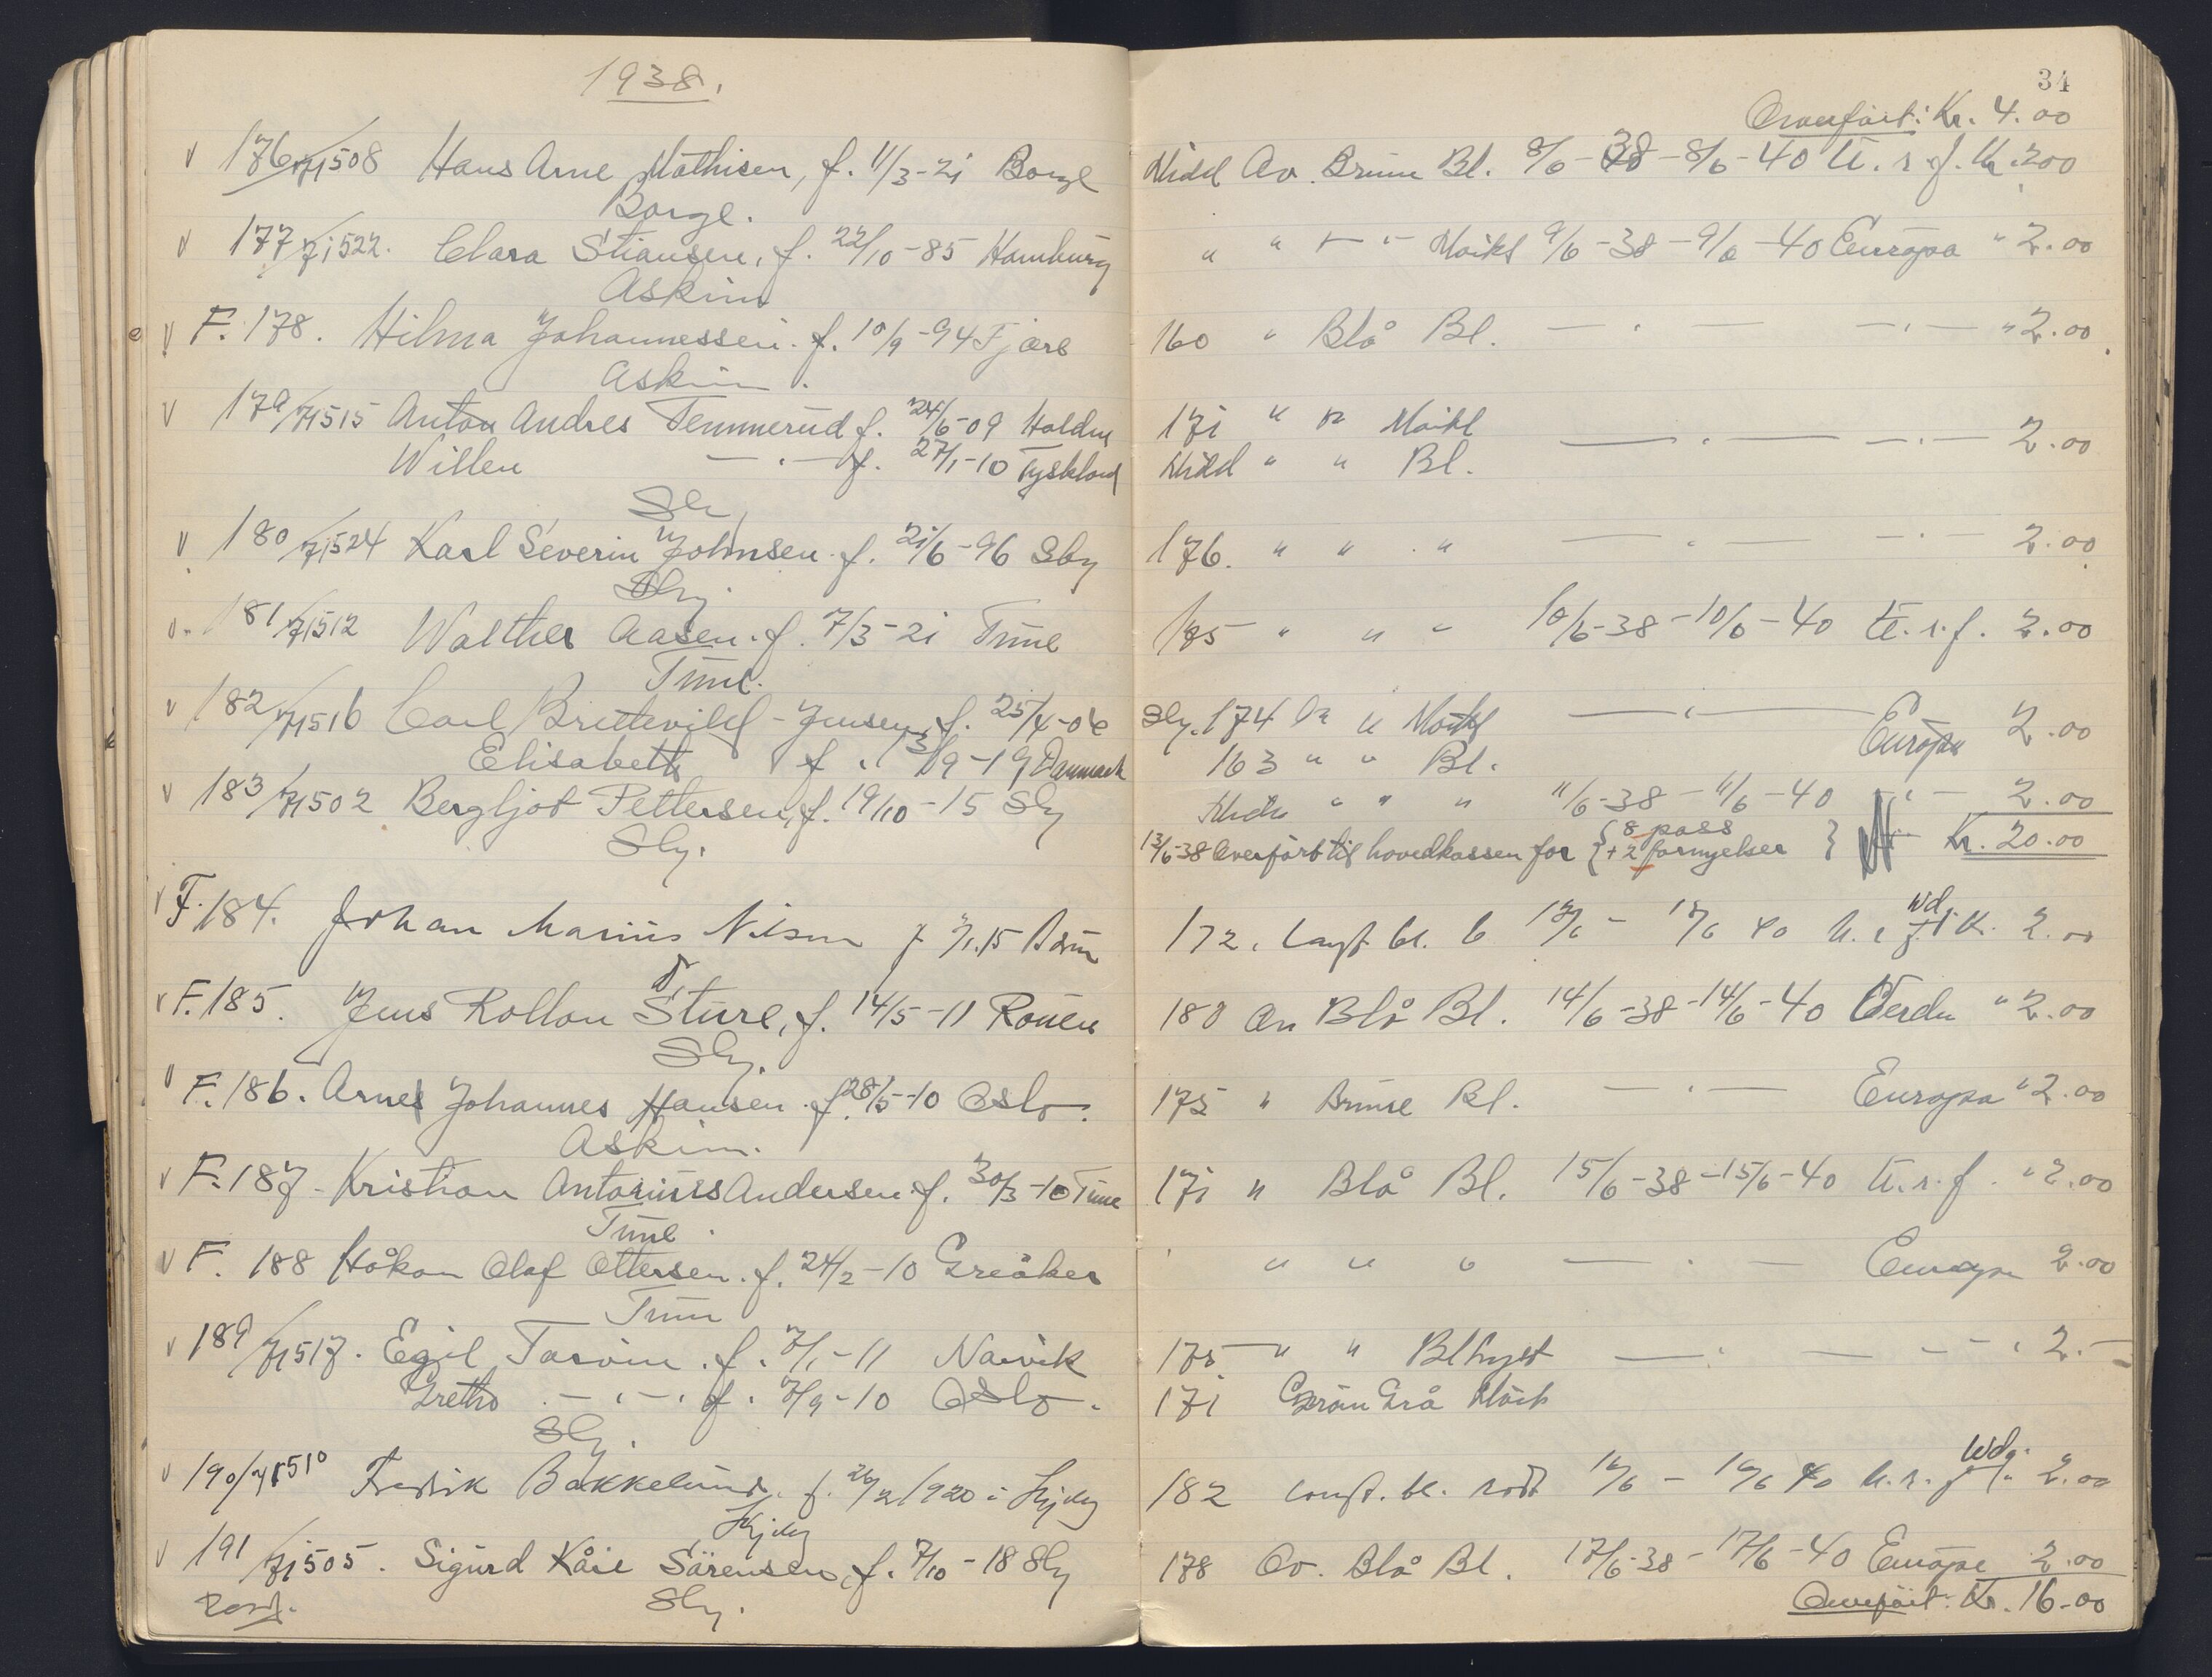 1938.
176/71508 Hans Arne Mathisen, f. 11/3-21 Borge
Borge.
177/71522. Clara Stiansen, f. 22/10-85 Hamburg
Askim
F. 178. Hilma Johannessen. f. 10/9-94 Fjære
Askim.
179/71515 Anton Andres Temmerud f. 24/6-09 Halden
Willen — . — f. 27/1-10 Tyskland
180/71524 Karl Severin Johnsen. f. 21/6-96 Sby
Sby.
181/71512 Walther Aasen. f. 7/3-21 Tune
Tune.
182/71516 Carl Brettevild-Jensen, f. 25/4-06
Elisabeth f. 3/9-19 Danmark
183/71502 Bergljot Pettersen, f. 19/10-15 Sby
Sby.
F. 184. Johan Marius Nilsen f
F. 185. Jens Rollon Sture, f. 14/5-11 Rouen
Sby.
F. 186. Arne Johannes Hansen. f. 28/5-10 Oslo.
Askim.
F. 187 - Kristian Antonius Andersen. f. 30/3-10 Tune
Tune.
F. 188 Håkon Olaf Ottersen. f. 24/2-10 Greåker
Tune
189/71517. Egil Tasvin. f. 7/1-11 Narvik
Grethe — . — . f. 7/9-10 Oslo.
Sby.
190/71510 Fredrik Bakkelund. f. 26/2 1920 i
191/71505. Sigurd Kåre Sörensen, f. 7/10-18 Sby
Sby.
34
Overført: Kr. 4.00
Midd Ov. Brune Bl. 8/6-38-8/6-40 U.r.f. Kr. 2.00
" " — " — Mørkt 9/6-38-9/6-40 Europa " 2.00
160 " Blå Bl. — . — — . — " 2.00
171 " " Mørkt
— . — — . — 2.00
Midd " " Bl.
176. " " " — . — — . — 2.00
185 " " " 10/6-38-10/6-40 U.r.f. 2.00
Sby. 174 " " Mørkt — . — Europa 2.00
163 " " Bl.
" " " 11/6-38-11/6-40 — . — 2.00
13/6-38 Overført til hovedkassen for {8 pass + 2 fornyelser} Kr. 20.00
172. Langt bl. 40 2.00
180 Ov Blå Bl. 14/6-38-14/6-40 Verden " 2.00
175 " Brune Bl. — . — Europa " 2.00
171 " Blå Bl. 15/6-38-15/6-40 U.r.f. " 2.00
" " " — . — Europa 2.00
175 " " Bl. — . — — " 2.—
171 Grå Mørk
182 bl. 40 2.00
178 Ov. Blå Bl. 17/6-38-17/6-40 Europa 2.00
Overført: Kr. 16.00